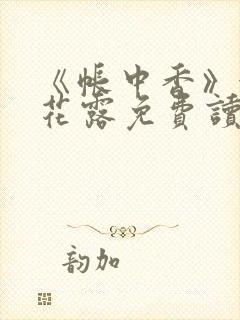 《帐中香》
花露免費讀
韵加